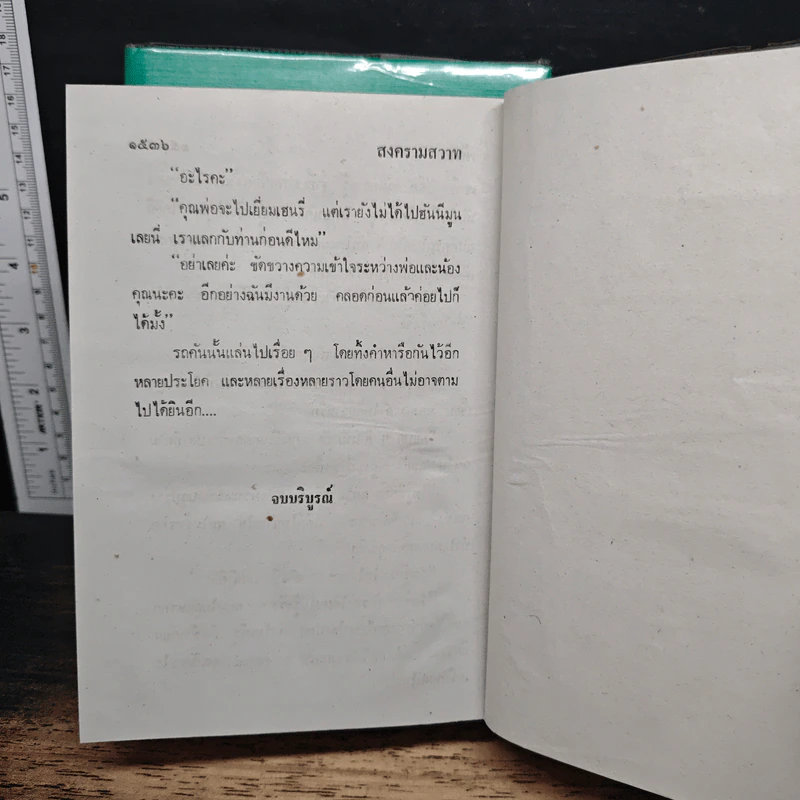 ๑๕๓๖ สงครามสวาท
“อะไรคะ”
“คุณพ่อจะไปเยี่ยมเฮนรี่ แต่เรายังไม่ได้ไปฮันนีมูน
เลยนี่ เราแลกกับท่านก่อนดีไหม”
“อย่าเลยค่ะ ขัดขวางความเข้าใจระหว่างพ่อและน้อง
คุณนะคะ อีกอย่างฉันมีงานด้วย คลอดก่อนแล้วค่อยไปก็
ได้มั้ง”
รถคันนั้นแล่นไปเรื่อย ๆ โดยทิ้งคำหารือกันไว้อีก
หลายประโยค และหลายเรื่องหลายราวโดยคนอื่นไม่อาจตาม
ไปได้ยินอีก....
จบบริบูรณ์